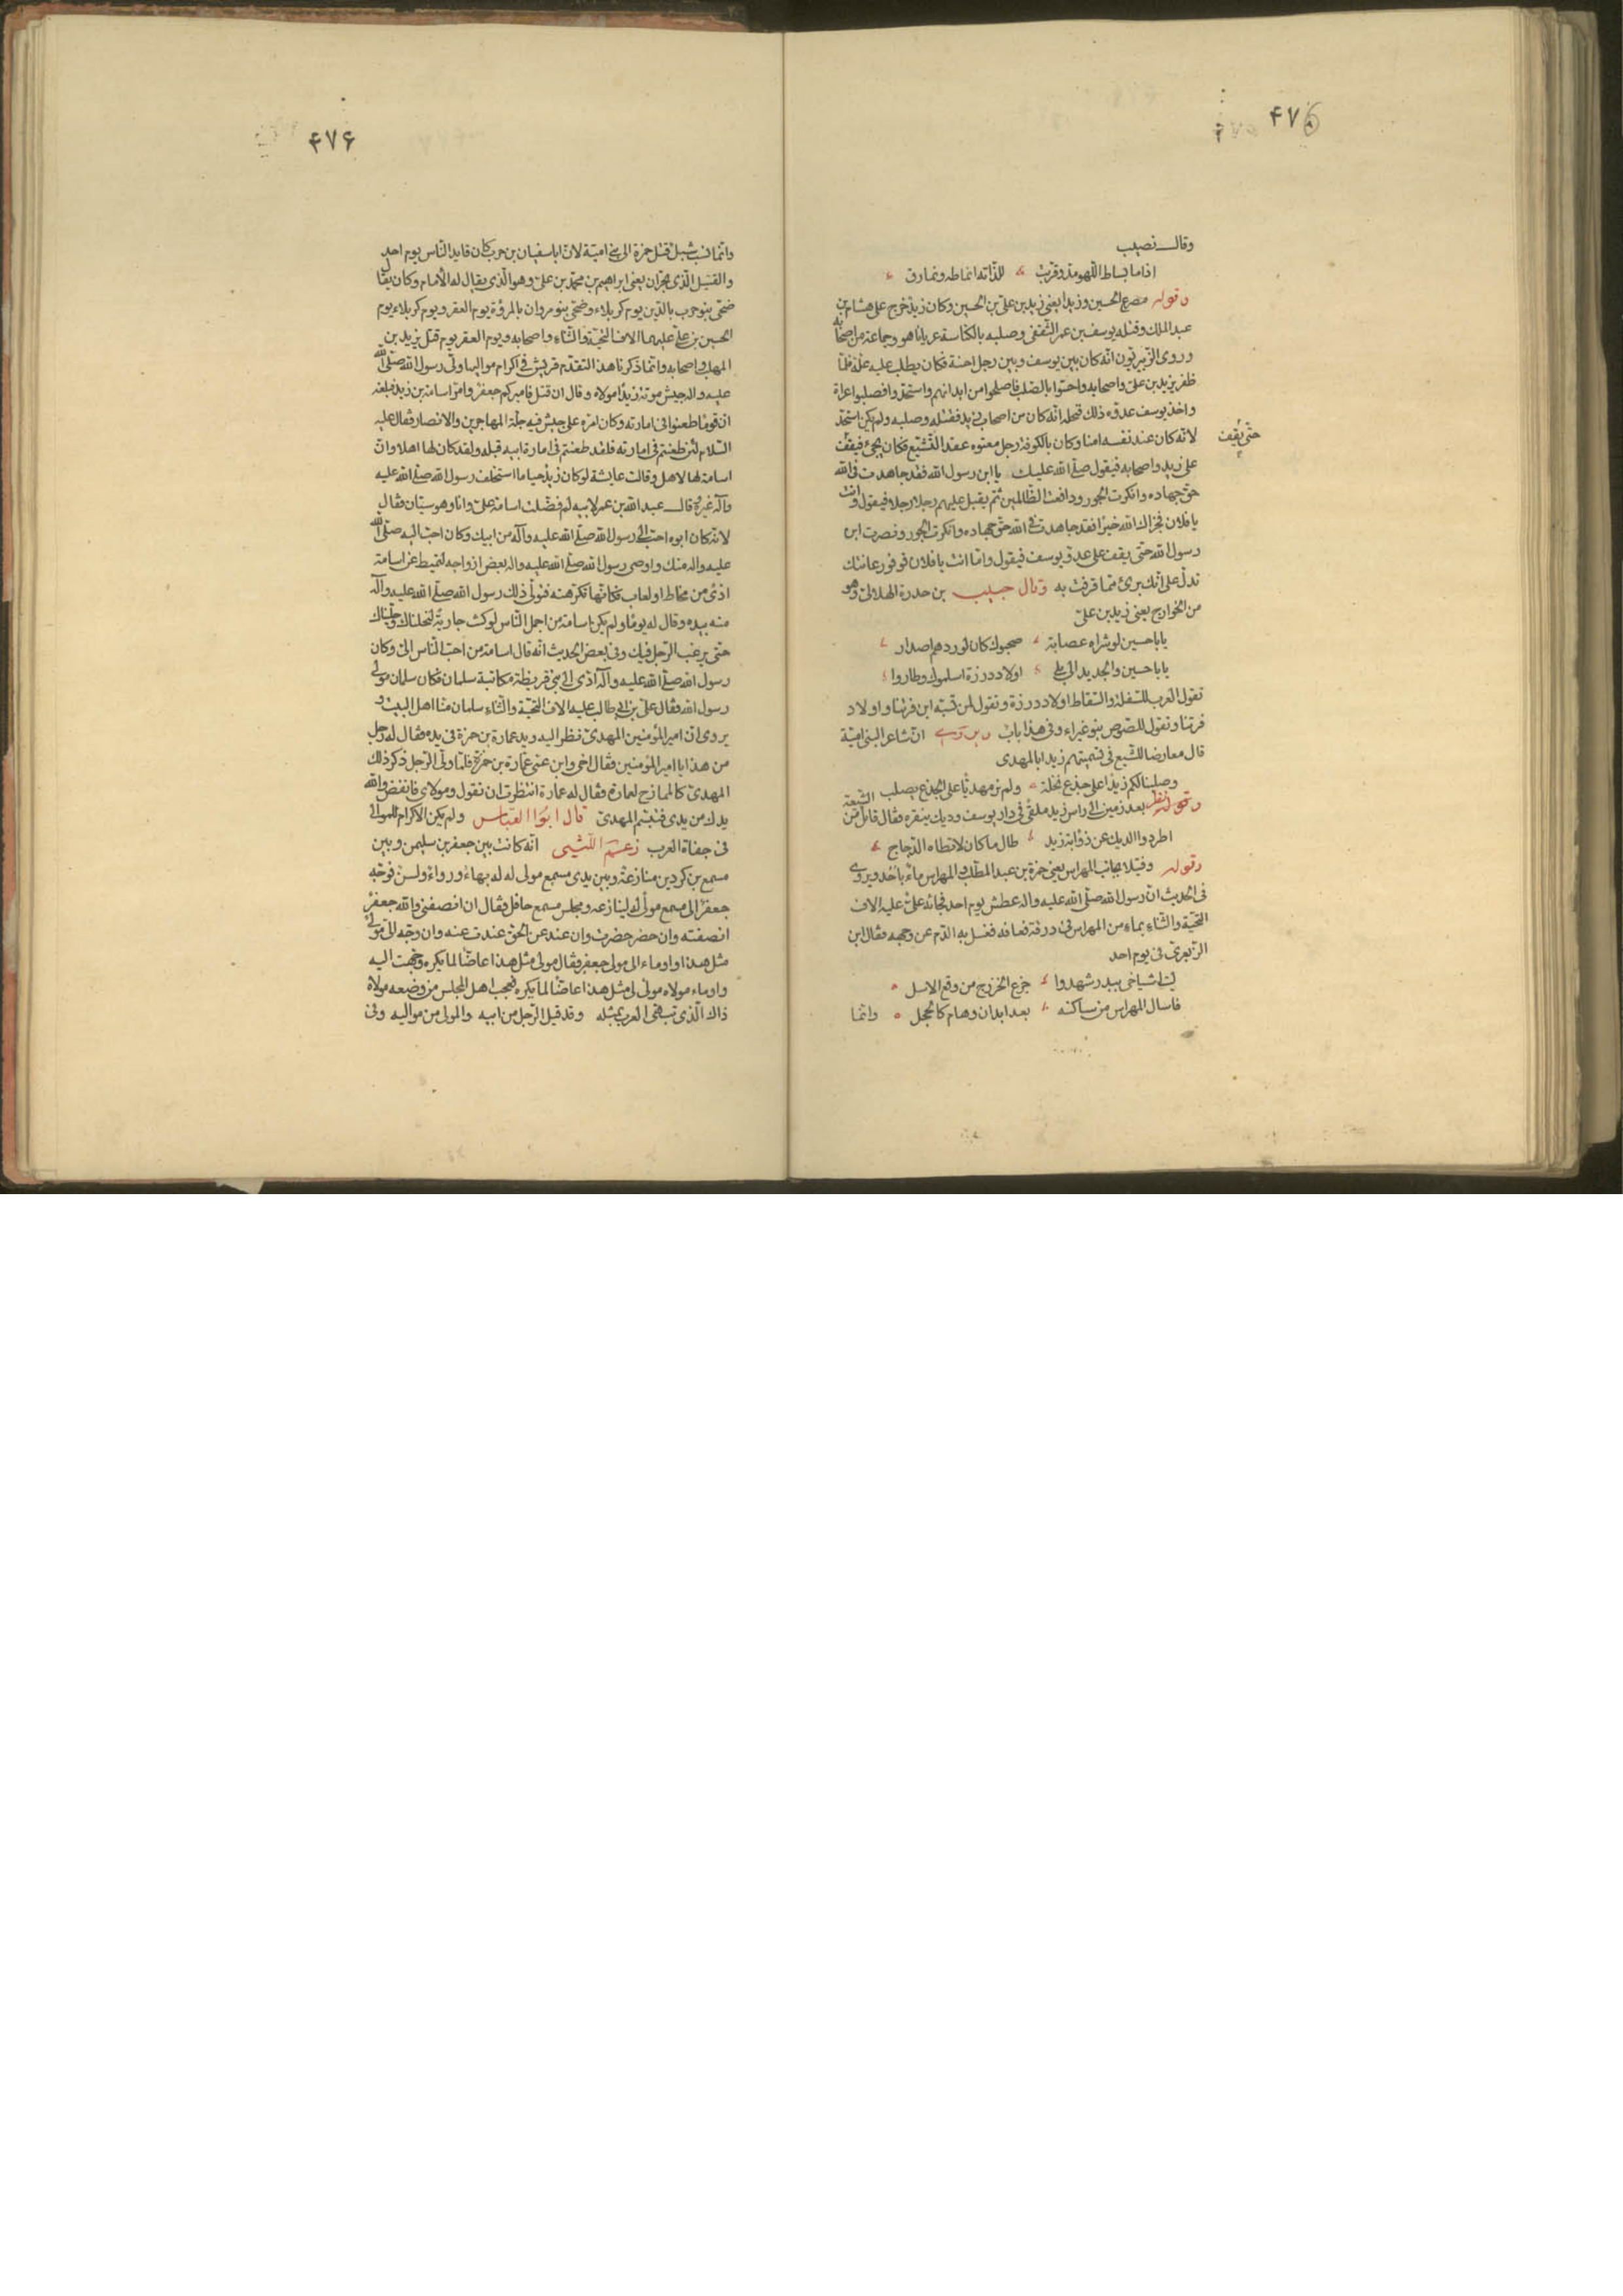 ۴۷۵
وقال نصيب
اذا ما بساط اللهو مد وقربت للذاته انماطه ونمارق
وقوله مصرع الحسين وزيد ايعنى زيد بن على بن الحسين وكان زيد خرج على هشام بن
عبد الملك وقتله يوسف بن عمر الثقفى وصلبه بالكناسة عريانا هو وجماعة من اصحابه
وروى الزبيريون انه كان بين يوسف وبين رجل احنة فكان يطلب عليه علة فلما
ظفر بزيد بن على واصحابه واحسوا بالصلب فاصلحوا من ابدانهم واستحدوا فصلبوا عراة
واخذ يوسف عدوه ذلك فنحله انه كان من اصحاب زيد فقتله وصلبه ولم يكن استحد
لانه كان عند نفسه امنا وكان بالكوفة رجل معتوه عقد التشيع فكان يجىء فيقف
حتى يقف
على زيد واصحابه فيقول صلى الله عليك يا ابن رسول الله فقد جاهدت فى الله
حق جهاده وانكرت الجور ودافعت الظالمين ثم يقبل عليهم رجلا رجلا فيقول وانت
يا فلان فجزاك الله خيرا فقد جاهدت فى الله حق جهاده وانكرت الجور ونصرت ابن
رسول الله حتى يقف على عدو يوسف فيقول واما انت يا فلان فوفور عانتك
تدل على انك برىء مما قرفت به وقال حبيب بن حدرة الهلالى وهو
من الخوارج يعنى زيد بن على
يا با حسين لو شراه عصابة صحبوك كان لوردهم اصدار
يا با حسين والجديد الى بلى اولاد درزة اسلموك وطاروا
تقول العرب للسفلة والسقاط اولاد درزة وتقول لمن تسبه ابن فرتنا واولاد
فرتنا وتقول للصوص بنو غبراء وفى هذا باب ان شاعرا لبنى امية
قال معارضا للشيع فى تسميتهم زيدا بالمهدى
وصلبنا لكم زيدا على جذع نخلة ولم نر مهديا على الجذع يصلب
بعد زمين الى راس زيد ملقى فى دار يوسف وديك ينقره فقال قائل من الشيعة
اطردوا الديك عن ذوابة زيد طال ما كان لا تطاه الدجاج
وقوله وقتيلا بجانب المهراس يعنى حمزة بن عبد المطلب والمهراس ماء باحد ويروى
فى الحديث ان رسول الله صلى الله عليه واله عطش يوم احد فجائه على عليه الاف
التحية والثناء بماء من المهراس فى درقة فعافه فغسل به الدم عن وجهه فقال ابن
الزبعرى فى يوم احد
ليت اشياخى ببدر شهدوا جزع الخزرج من وقع الاسل
فاسال المهراس من ساكنه بعد ابدان وهام كالحجل وانما
۴۷۶
وانما نسب شبل قتل حمزة الى بنى امية لان ابا سفيان بن حرب كان قايد الناس يوم احد
والقتيل الذى بحران يعنى ابراهيم بن محمد بن على وهو الذى يقال له الامام وكان يقال
ضحى بنو حرب بالدين يوم كربلاء وضحى بنو مروان بالمروة يوم العقر ويوم كربلاء يوم
الحسين بن على عليهما الاف التحية والثناء واصحابه ويوم العقر يوم قتل يزيد بن
المهلب واصحابه وانما ذكرنا هذا لتقدم قريش فى اكرام مواليها وولى رسول الله صلى الله
عليه واله جيش موتة زيدا مولاه وقال ان قتل فاميركم جعفر وامر اسامة بن زيد فبلغه
ان قوما طعنوا فى امارته وكان امره على جيش فيه جلة المهاجرين والانصار فقال عليه
السلام لئن طعنتم فى امارته فلقد طعنتم فى امارة ابيه قبله ولقد كان لها اهلا وان
اسامة لها لاهل وقالت عايشة لو كان زيد حيا ما استخلف رسول الله صلى الله عليه
وآله غيره قال عبد الله بن عمر لابيه لم فضلت اسامة على وانا وهو سيان فقال
لانه كان ابوه احب الى رسول الله صلى الله عليه وآله من ابيك وكان احب اليه صلى الله
عليه واله منك واوصى رسول الله صلى الله عليه واله بعض ازواجه لتميط عن اسامة
اذى من مخاط او لعاب فكانها تكرهته فتولى ذلك رسول الله صلى الله عليه وآله
منه بيده وقال له يوما ولم يكن اسامة من اجمل الناس لو كنت جارية لنحلناك وحليناك
حتى يرغب الرجل فيك وفى بعض الحديث انه قال اسامة من احب الناس الى وكان
رسول الله صلى الله عليه وآله ادى الى بنى قريظة مكاتبة سلمان فكان سلمان مولى
رسول الله فقال على بن ابى طالب عليه الاف التحية والثناء سلمان منا اهل البيت و
يروى ان امير المؤمنين المهدى نظر اليه ويد عمارة بن حمزة فى يده فقال له رجل
من هذا يا امير المؤمنين فقال اخى وابن عمى عمارة بن حمزة فلما ولى الرجل ذكر ذلك
المهدى كالممازح لعمارة فقال له عمارة انتظرت ان تقول ومولاى فانفض والله
يدك من يدى فتبسم المهدى قال ابو العباس ولم يكن الاكرام للموالى
فى جفاة العرب زعم الليثى انه كانت بين جعفر بن سليمن وبين
مسمع بن كردين منازعة وبين يدى مسمع مولى له له بهاء ورواء ولسن فوجه
جعفر الى مسمع مولى له لينازعه ومجلس مسمع حافل فقال ان انصفنى والله جعفر
انصفته وان حضر حضرت وان عند عن الحق عندت عنه وان وجه الى مولى
مثل هذا واوماء الى مولى جعفر فقال مولى مثل هذا عاضا لما يكره وجهت اليه
واوماء مولاه مولى لى مثل هذا عاضا لما يكره فعجب اهل المجلس من وضعه مولاه
ذاك الذى تبهى العرب بمثله وقد قيل الرجل من ابيه والمولى من مواليه وفى